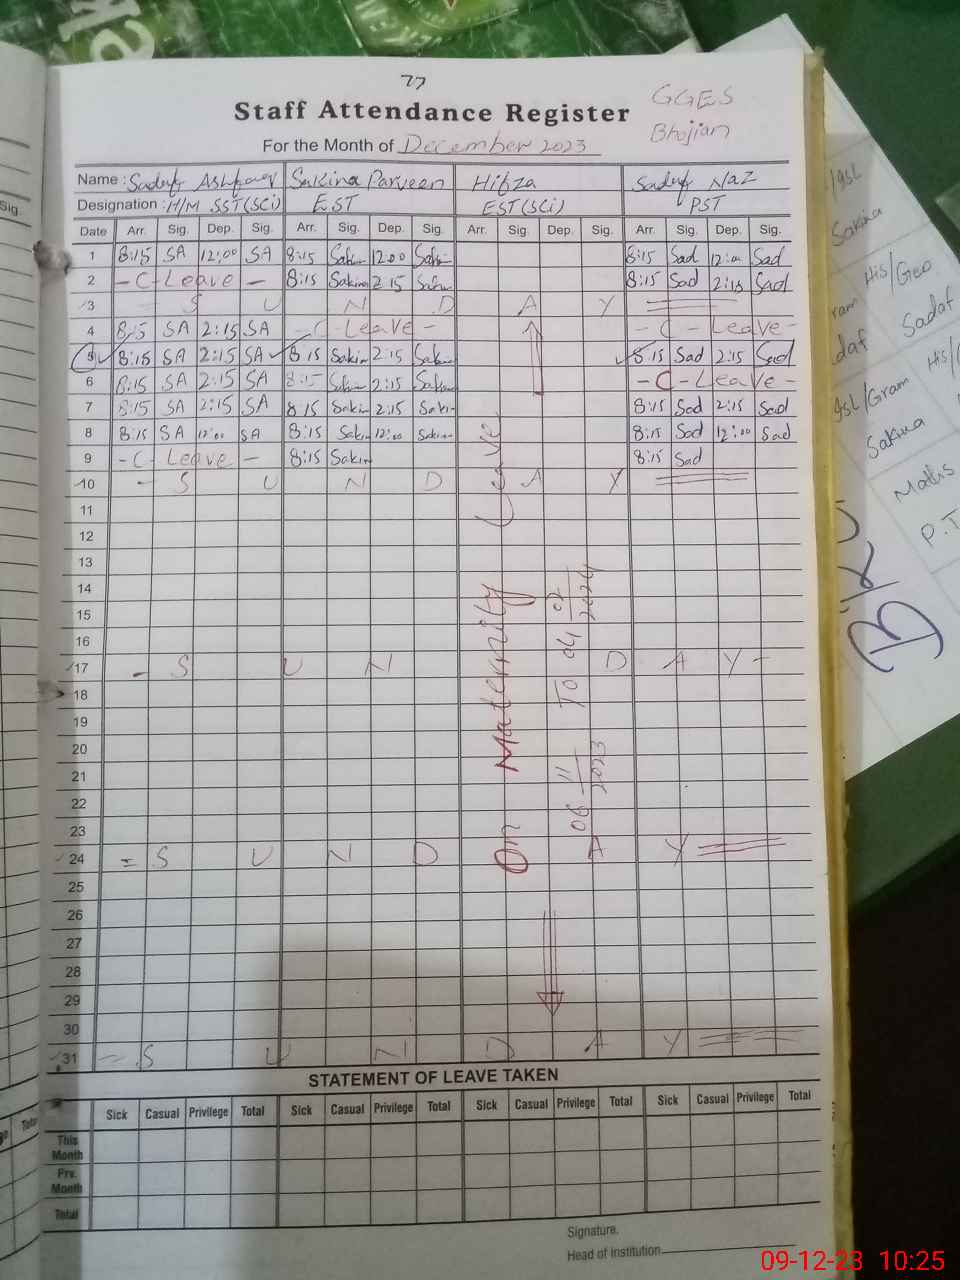 77
Staff Attendance Register
GGES
Bhojian
For the Month of December 2023
Name : Sadaf Ashfaq Sakina Parveen Hifza Sadaf Naz
Designation : H/M SST(SCi) EST EST(SCi) PST
Date Arr. Sig. Dep. Sig. Arr. Sig. Dep. Sig. Arr. Sig. Dep. Sig. Arr. Sig. Dep. Sig.
1 8:15 SA 12:00 SA 8:15 Sakin 12:00 Sakin 8:15 Sad 12:00 Sad
2 - C - Leave - 8:15 Sakina 2:15 Sakin 8:15 Sad 2:15 Sad
3 S U N D A Y
4 8:15 SA 2:15 SA - C - Leave - - C - Leave -
5 8:15 SA 2:15 SA 8:15 Sakin 2:15 Sakin 8:15 Sad 2:15 Sad
6 8:15 SA 2:15 SA 8:15 Sakin 2:15 Sakin - C - Leave -
7 8:15 SA 2:15 SA 8:15 Sakin 2:15 Sakin 8:15 Sad 2:15 Sad
8 8:15 SA 12:00 SA 8:15 Sakin 12:00 Sakin 8:15 Sad 12:00 Sad
9 - C - Leave - 8:15 Sakin 8:15 Sad
10 - S U N D A Y
11
12
13
14
15
16
17 - S U N D A Y -
18
19
20
21
22
23
24 = S U N D A Y
25
26
27
28
29
30
31 - S U N D A Y
On Maternity Leave
06 11/2023 To 04 02/2024
STATEMENT OF LEAVE TAKEN
Sick Casual Privilege Total Sick Casual Privilege Total Sick Casual Privilege Total Sick Casual Privilege Total
This Month
Prv. Month
Total
Signature.
Head of Institution
Sig.
Total
/gsl
Sakina
His/Geo
ram
Sadaf
daf
His/
gsl/Gram
Sakina
Maths
P.T
09-12-23 10:25